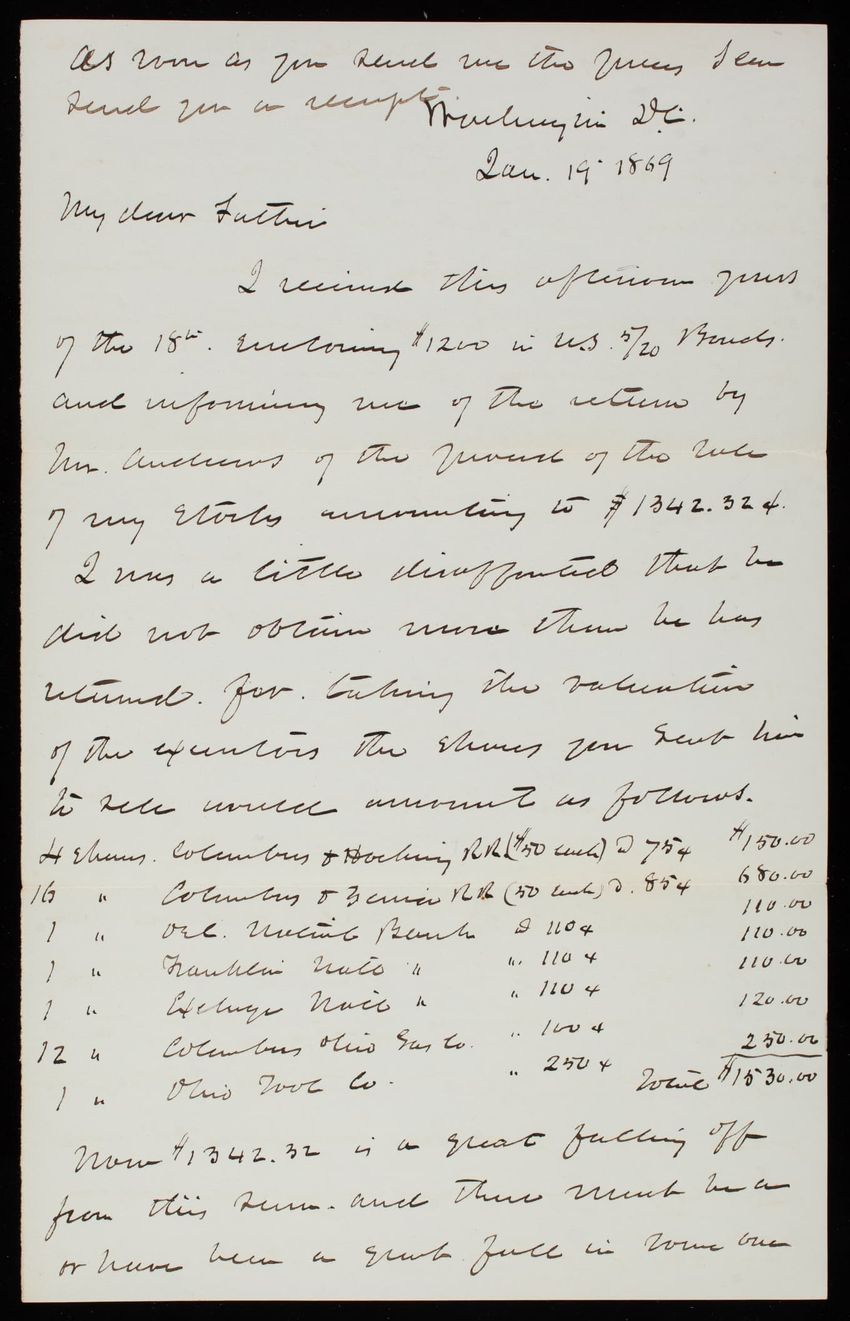 As soon as you send me the prices I can
send you a receipt
Washington D.C.
Jan. 19 1869
My dear Father
I received this afternoon yours
of the 18th. enclosing $1200 in U.S. 5/20 Bonds.
and informing me of the return by
Mr. Andrews of the proceed of the sale
of my stocks amounting to $1342.32 ¢.
I was a little disappointed that he
did not obtain more than he has
returned. for. taking the valuation
of the executors the shares you sent him
to sell would amount as follows.
4 Shares. Columbus & Hocking RR ($50 each) @ 75¢ $150.00
16 " Columbus & Xenia RR (50 each) @. 85¢ 680.00
1 " National Bank @ 110¢ 110.00
1 " Franklin Natl " " 110¢ 110.00
1 " Exchange Natl " " 110¢ 110.00
12 " Columbus Ohio Gas Co. " 100¢ 120.00
1 " Ohio Tool Co. " 250¢ 250.00
Total $1530.00
Now $1342.32 is a great falling off
from this sum. and there must be a
or have been a great fall in some one